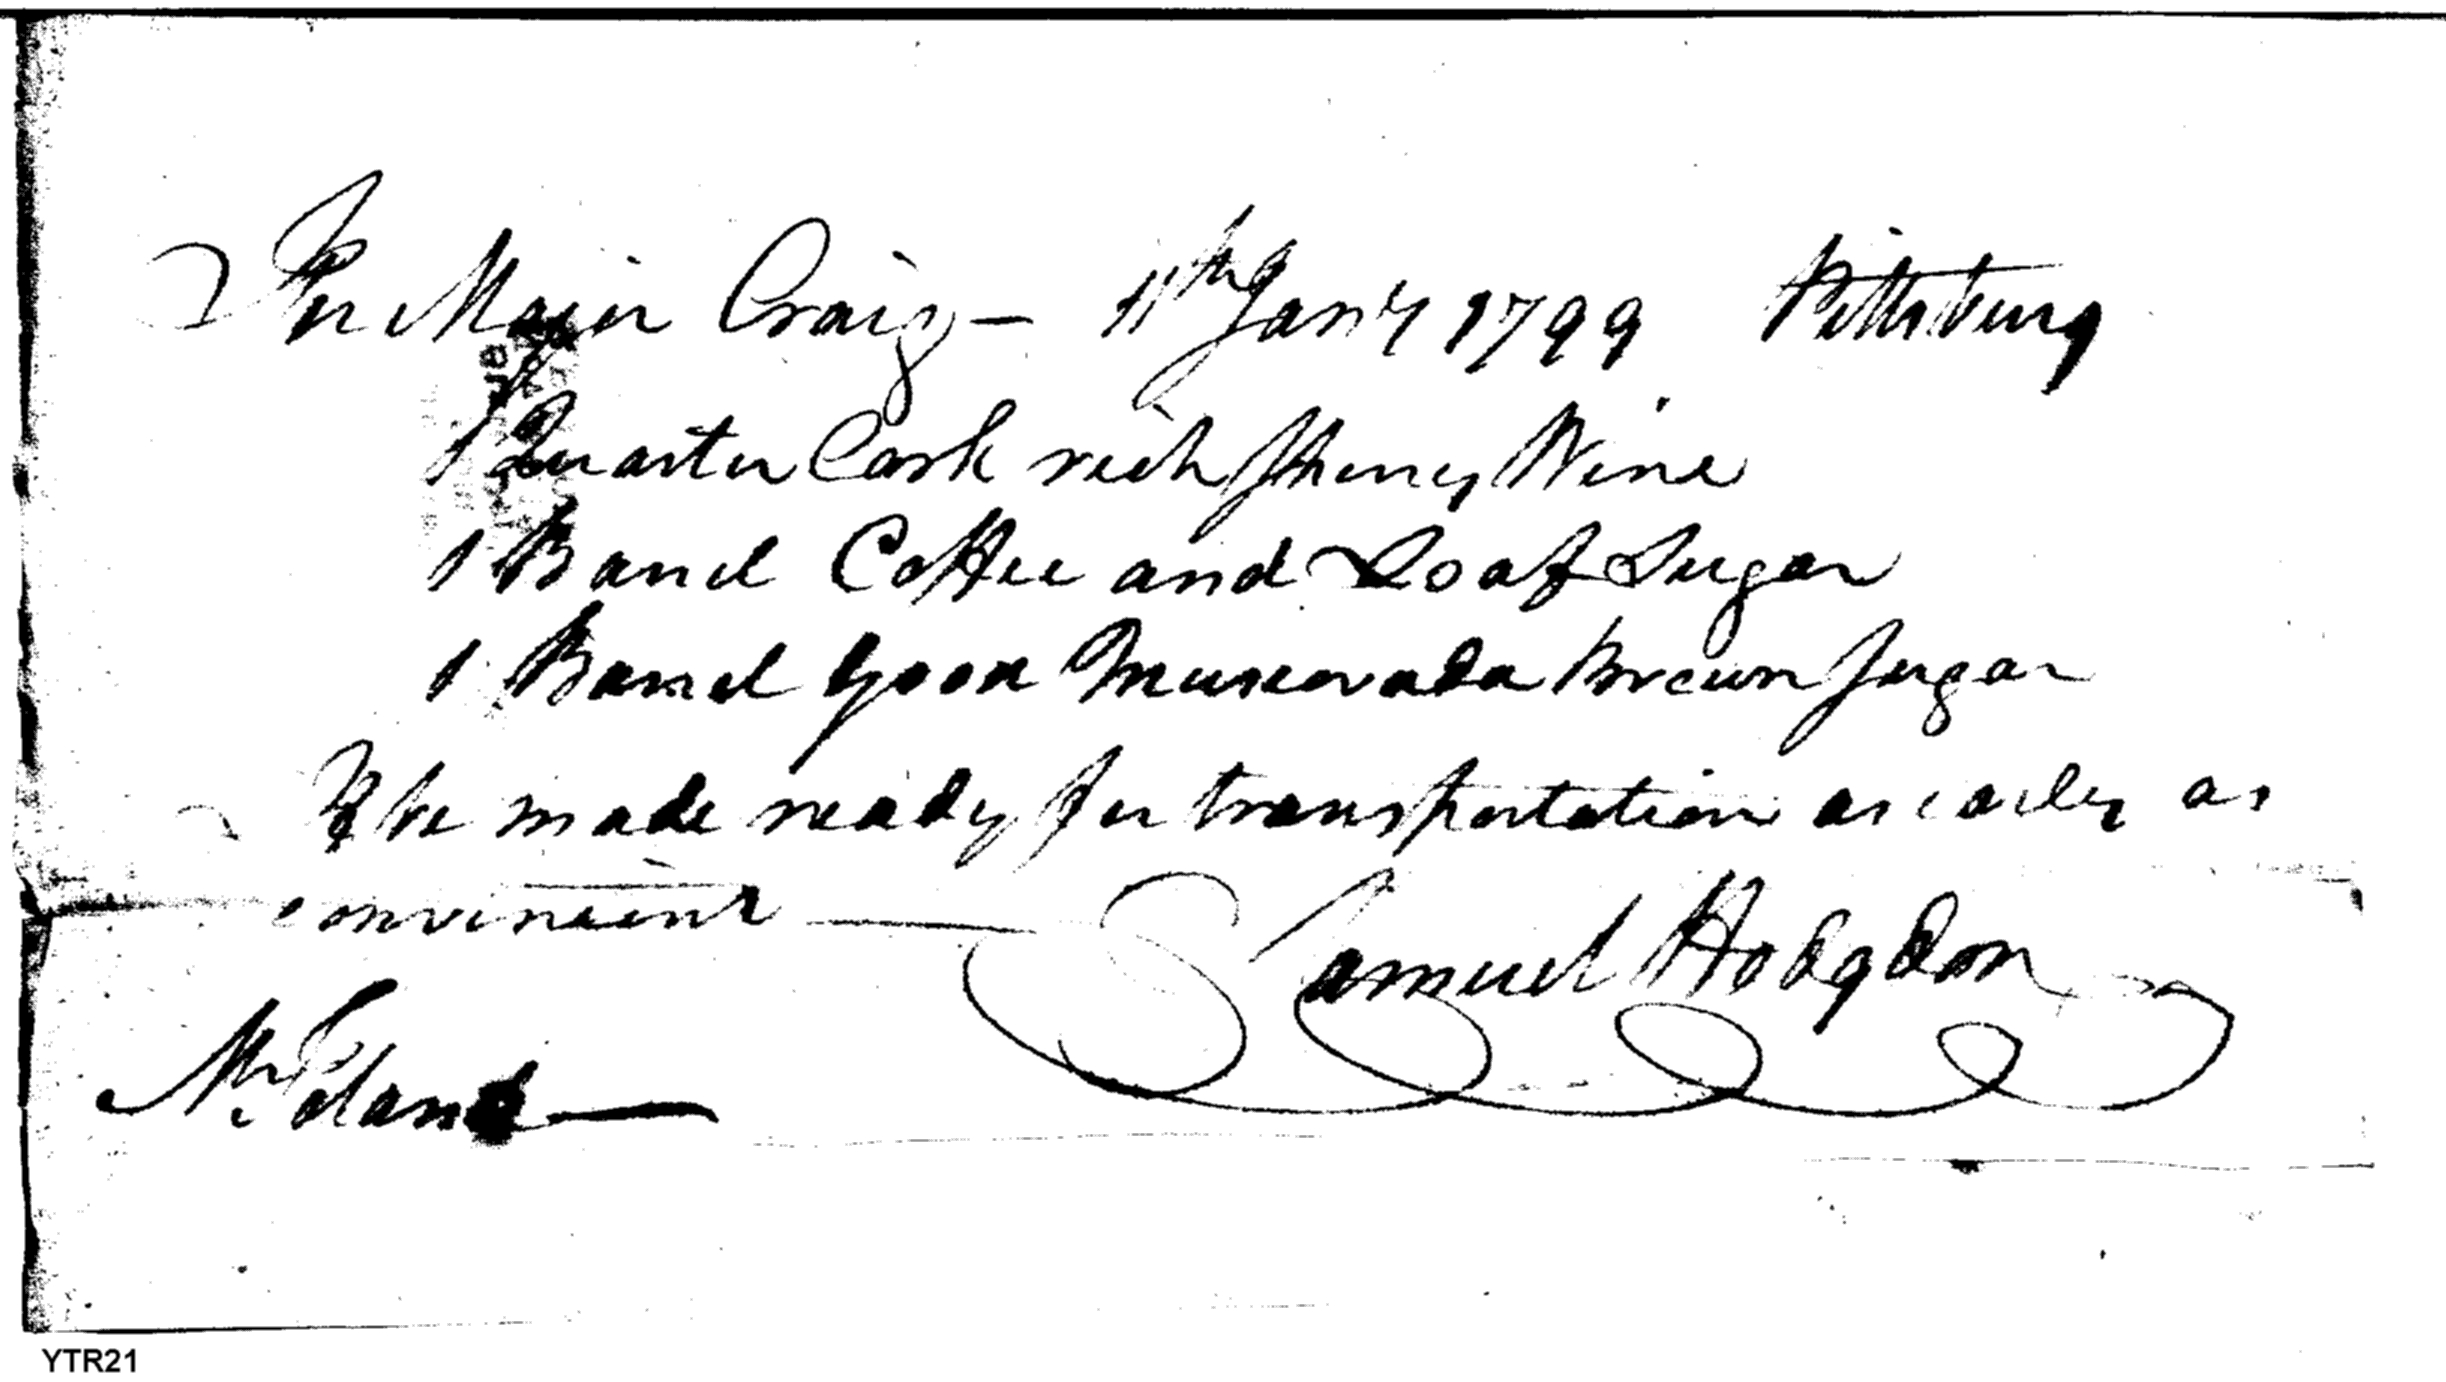 For Major Craig — 11th Jany 1799 Pittsburg
1 Quarter Cask rich Sherry Wine
1 Barrel Coffee and Loaf Sugar
1 Barrel Good Muscovada Brown Sugar
To be made ready for transportation as early as
convenient —
Samuel Hodgdon
Mr. Eland —
YTR21